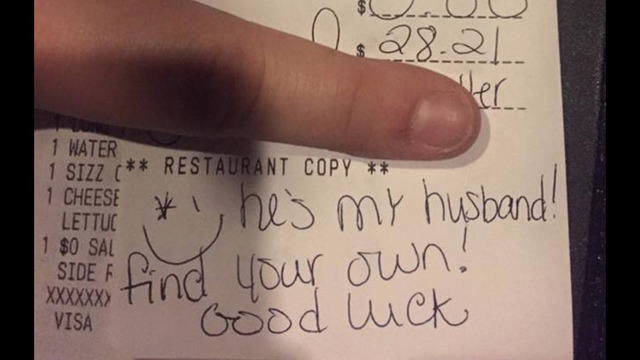 $ 0.00
$ 28.21
1 WATER
1 SIZZ
** RESTAURANT COPY **
1 CHEESE
LETTUC
he's my husband!
1 $0 SAL
find your own!
SIDE
XXXXXXX
Good luck
VISA